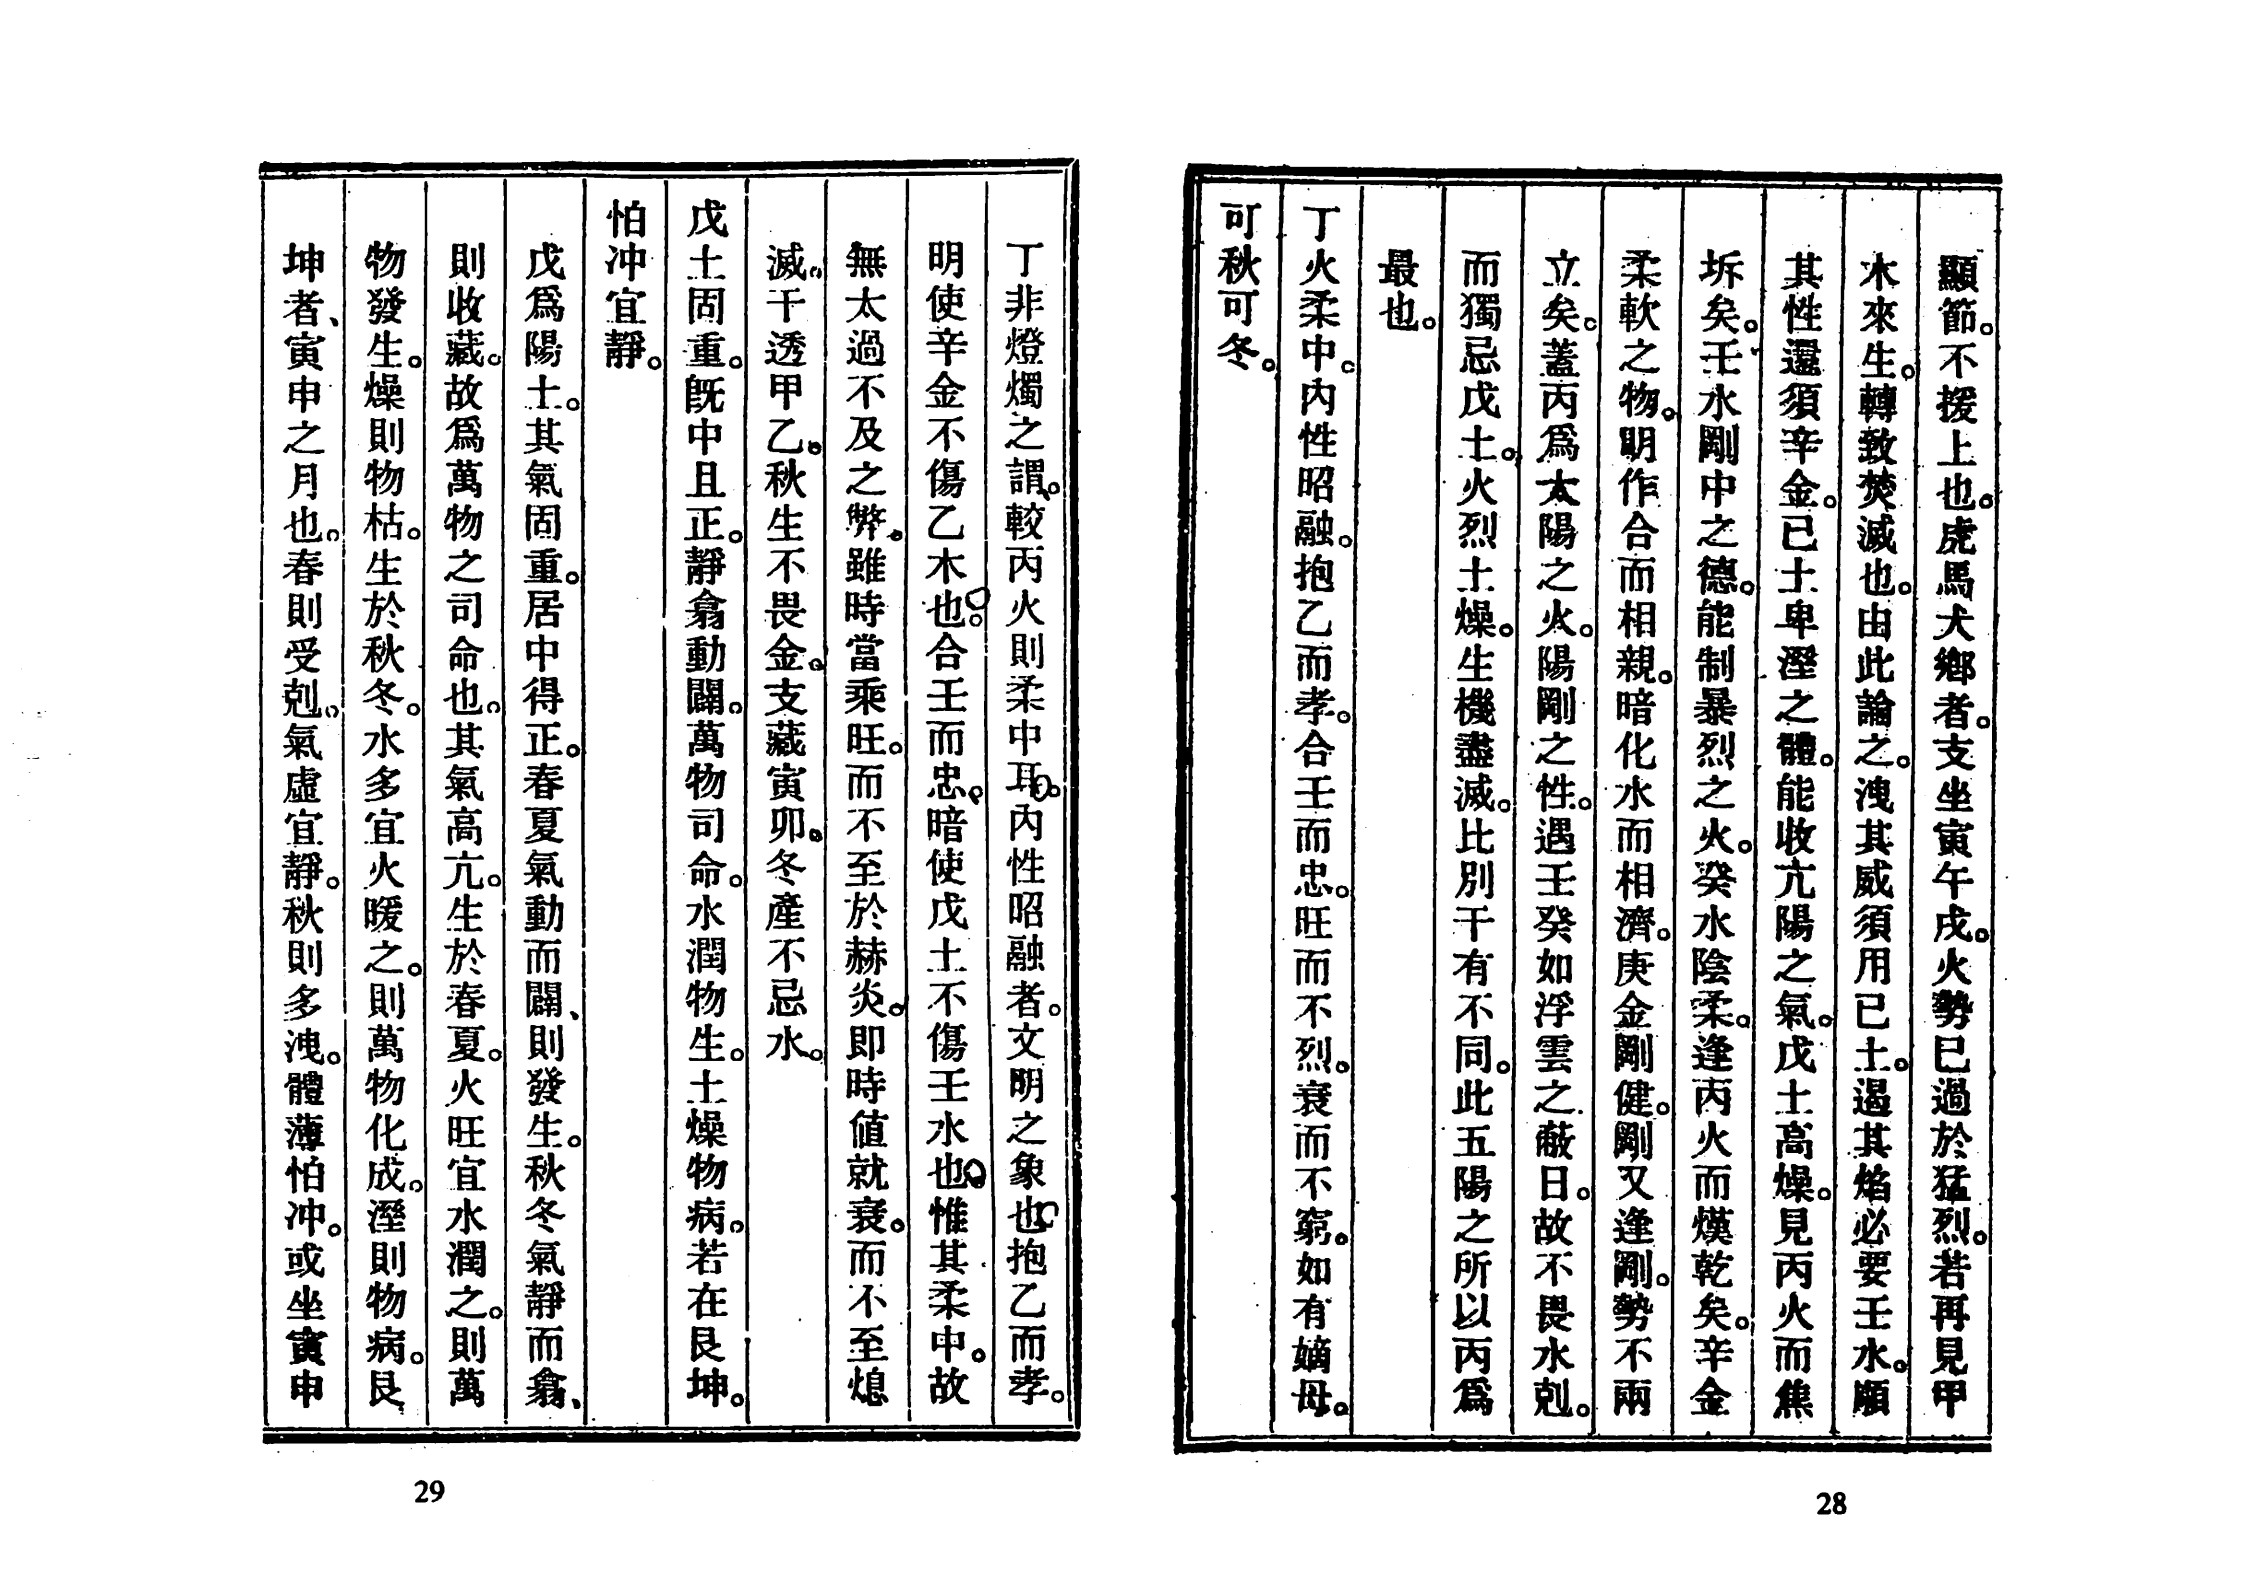 顯節。不援上也。虎馬犬鄕者。支坐寅午戌。火勢已過於猛烈。若再見甲
木來生。轉致焚滅也。由此論之。洩其威須用已土。遏其焰必要壬水。順
其性還須辛金。已土卑溼之體。能收亢陽之氣。戊土高燥。見丙火而焦
坼矣。壬水剛中之德。能制暴烈之火。癸水陰柔。逢丙火而熯乾矣。辛金
柔軟之物。明作合而相親。暗化水而相濟。庚金剛健。剛又逢剛。勢不兩
立矣。蓋丙爲太陽之火。陽剛之性。遇壬癸如浮雲之蔽日。故不畏水剋。
而獨忌戊土。火烈土燥。生機盡滅。比別干有不同。此五陽之所以丙爲
最也。
丁火柔中。內性昭融。抱乙而孝。合壬而忠。旺而不烈。衰而不窮。如有嫡母。
可秋可冬。
28
丁非燈燭之謂。較丙火則柔中耳。內性昭融者。文明之象也。抱乙而孝。
明使辛金不傷乙木也。合壬而忠。暗使戊土不傷壬水也。惟其柔中。故
無太過不及之弊。雖時當乘旺。而不至於赫炎。即時値就衰。而不至熄
滅。干透甲乙。秋生不畏金。支藏寅卯。冬產不忌水。
戊土固重。旣中且正。靜翕動闢。萬物司命。水潤物生。土燥物病。若在艮坤。
怕冲宜靜。
戊爲陽土。其氣固重。居中得正。春夏氣動而闢、則發生。秋冬氣靜而翕、
則收藏。故爲萬物之司命也。其氣高亢。生於春夏。火旺宜水潤之。則萬
物發生。燥則物枯。生於秋冬。水多宜火暖之。則萬物化成。溼則物病。艮
坤者、寅申之月也。春則受剋。氣虛宜靜。秋則多洩。體薄怕冲。或坐寅申
29